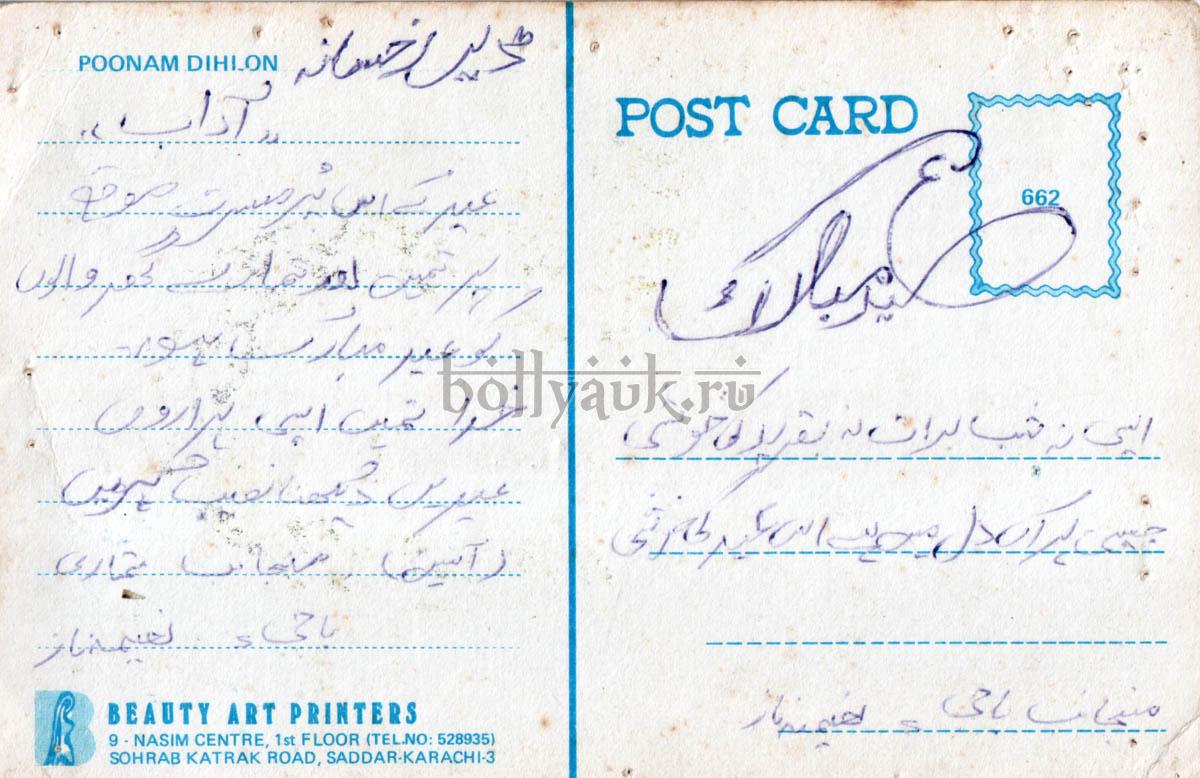 POONAM DIHLON
رخسانہ
"آداب"
عید کے اس پُر مسرت موقع
پر تمہیں اور تمہارے گھر والوں
کو عید مبارک ہو۔
خدا تمہیں ایسی ہزاروں
عیدیں دیکھنا نصیب کریں
(آمین) منجانب تمہاری
باجی نعیمہ ناز
BEAUTY ART PRINTERS
9 - NASIM CENTRE, 1st FLOOR (TEL.NO: 528935)
SOHRAB KATRAK ROAD, SADDAR-KARACHI-3
POST CARD
662
عید مبارک
bollyauk.ru
ایسی نہ شب برات نہ بقرعید کی خوشی
جیسی ہر اک دل میں ہے اس عید کی خوشی
منجانب باجی نعیمہ ناز